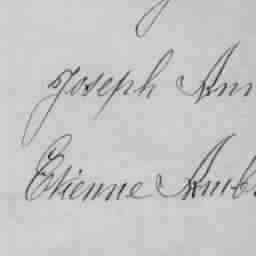 Joseph Am
Etienne Amb